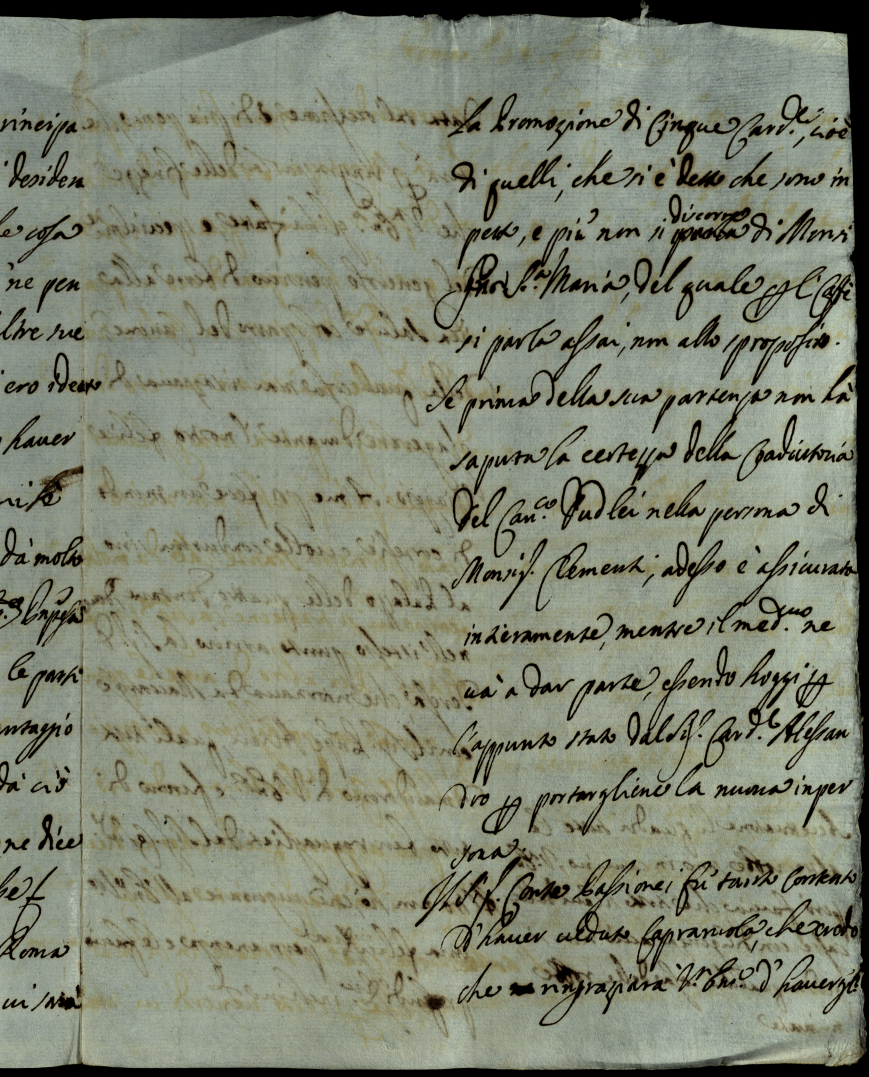 rincipa
desider
le cosa
ne pen
ltre sue
iero ide
hauer
dà molto
le parti
ntaggio
dà ciò
ne dice
Roma
ui sarà
La Promozione di Cinque Card.li, cioè
di quelli, che si è detto che sono in
petto, e più non si discorre di Monsi
S.ta Maria, del quale p li Caffè
si parla assai, non allo sproposito.
Se prima della sua partenza non hà
saputa la certezza della Coadiutoria
del Can.co Pudlei nella persona di
Monsig. Clementi, adesso è assicurata
intieramente, mentre il med.mo ne
uà a dar parte, essendo hoggi p
l'appunto stato dal Sig. Card.l Alessan
dro p portargliene la nuoua in per
sona.
Il Sig. Conte Passionei fù tanto contento
d'hauer ueduto Capraruola, che credo
che ringraziarà V. Em.a d'hauergli